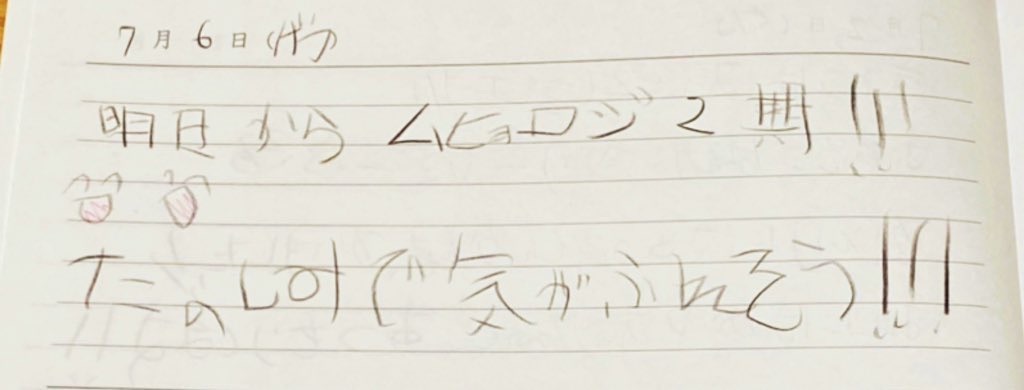 7月6日(げつ)
明日からムヒョロジ2期!!!
たのしみで気がふれそう!!!